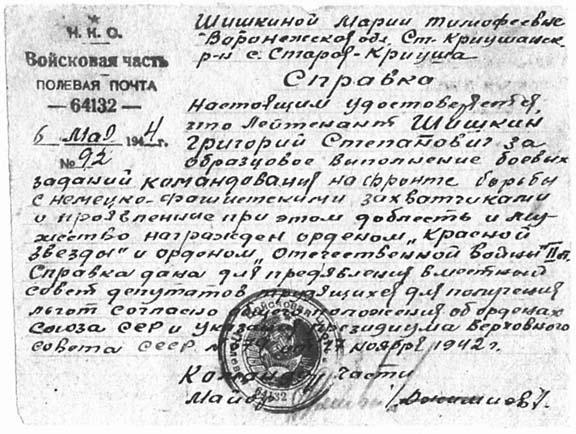 Н. К. О.
Войсковая часть
ПОЛЕВАЯ ПОЧТА
— 64132 —
6 мая 1944 г.
№ 92
Шишкиной Марии Тимофеевне
Воронежская обл. Ст.-Криушанск.
р-н с. Старая-Криуша
Справка
Настоящим удостоверяется
что Лейтенант Шишкин
Григорий Степанович за
образцовое выполнение боевых
заданий командования на фронте борьбы
с немецко-фашистскими захватчиками
и проявленные при этом доблесть и му-
жество награжден орденом „Красной
звезды" и орденом „Отечественной Войны" II ст.
Справка дана для предявления в местный
совет депутатов трудящихся для получения
льгот согласно общего положения об орденах
Союза ССР и Указания Президиума Верховного
совета СССР ноября 1942 г.
Командир части
Майор
64132